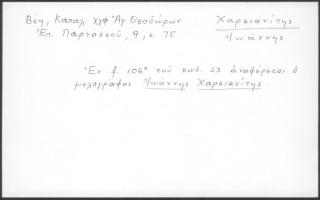 Βέη, Καταλ. χγφ Ἁγ. Θεοδώρων
Ἐπ. Παρνασσοῦ, 9, σ. 75
Χαρσιανίτης
Ἰωάννης
Ἐν f. 106ᵃ τοῦ κωδ. 23 ἀναφέρεται ὁ
μελογράφος Ἰωάννης Χαρσιανίτης.